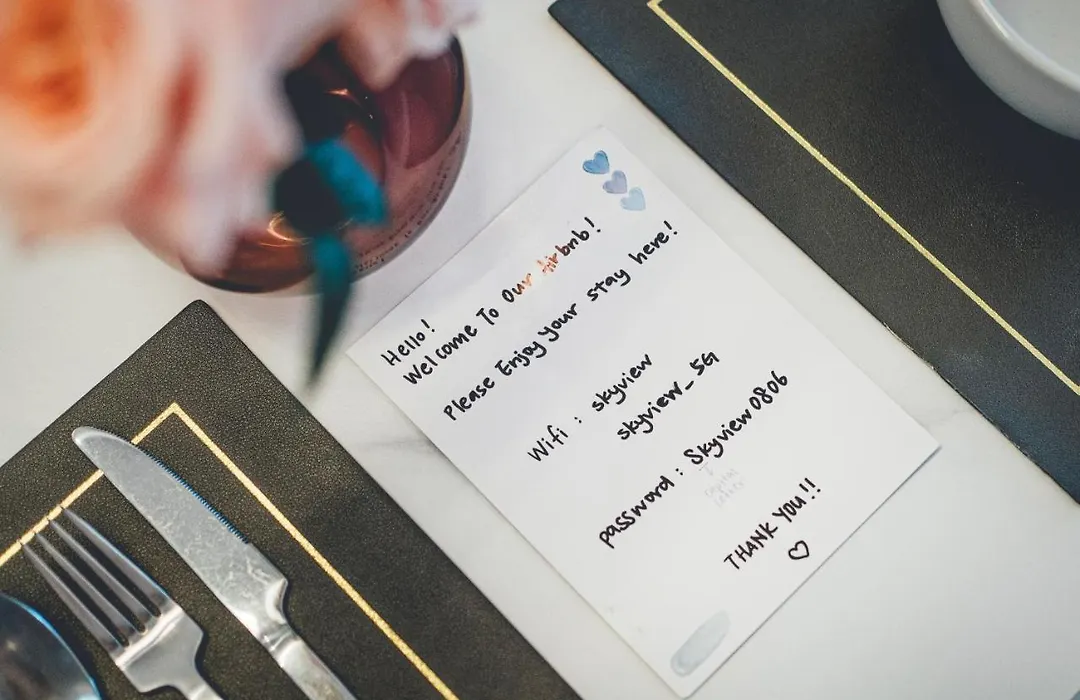 Hello!
Welcome To Our Airbnb!
Please Enjoy your stay here!
Wifi : skyview
skyview_5G
password : Skyview0806
THANK YOU!!